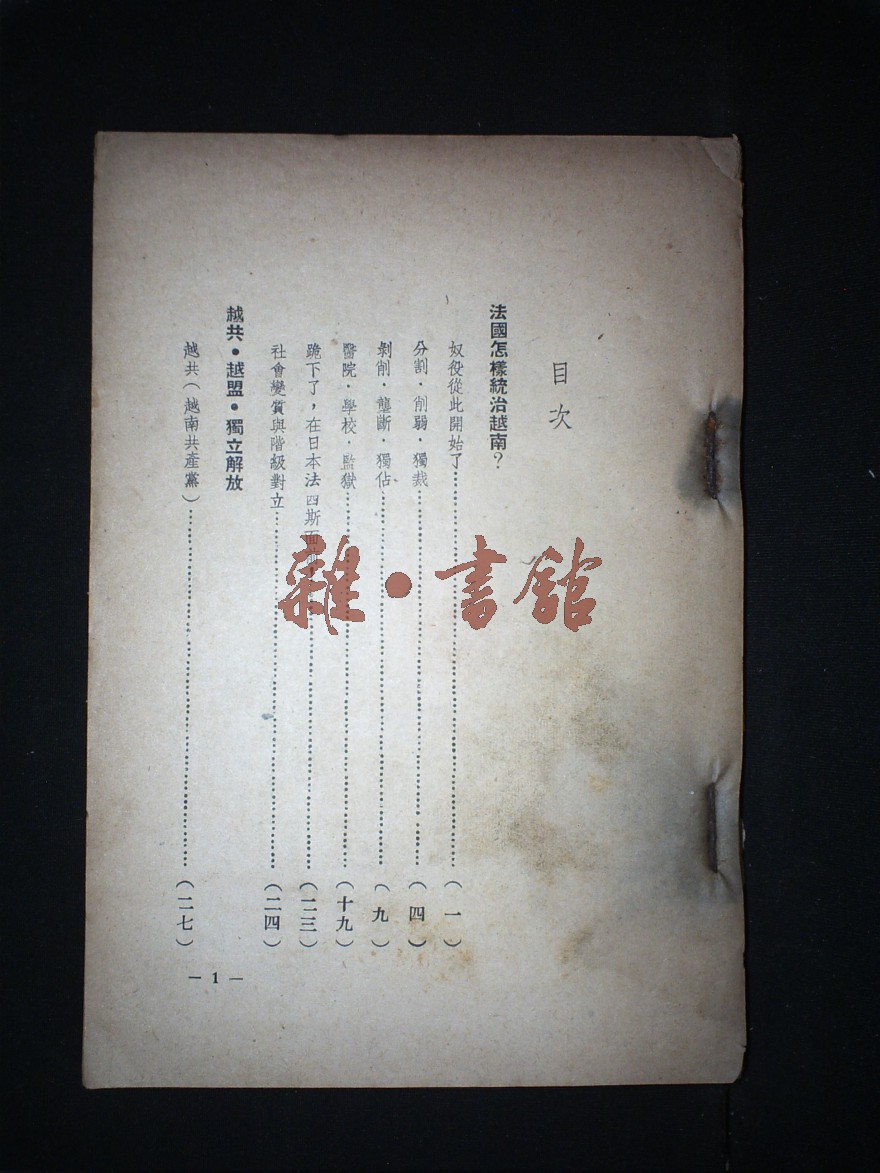 目次
法國怎樣統治越南？
奴役從此開始了……（一）
分割．削弱．獨裁……（四）
剝削．壟斷．獨佔……（九）
醫院．學校．監獄……（十九）
跪下了，在日本法西斯面前……（二三）
社會變質與階級對立……（二四）
越共•越盟•獨立解放
越共（越南共產黨）……（二七）
— 1 —
雜•書館